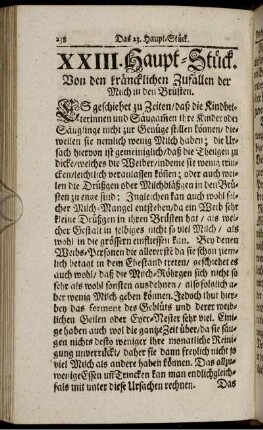 238 Das 23. Haupt-Stück.
XXIII. Haupt-Stück.
Von den kräncklichen Zufällen der
Milch in den Brüsten.
ES geschiehet zu Zeiten/daß die Kindbet-
terinnen und Säugatien ihre Kinder oder
Säuglinge nicht zur Genüge stillen können/die-
weilen sie nemlich wenig Milch haben; die Ur-
sach hiervon ist gemeiniglich/daß die
dicke/welches die Weiber/indeme sie wenig trin-
cken/leichtlich veranlassen können; oder auch wei-
len die Drüßgen oder Milchbläßgen in den Brü-
sten zu enge sind; Ingleichen kan auch wohl sol-
cher Milch-Mangel entstehen/da ein Weib sehr
kleine Drüßgen in ihren Brüsten hat/ als wel-
cher Gestalt in selbiges nicht so viel Milch/ als
wohl in die grössern einfliessen kan. Bey denen
Weibs-Personen die allererst/da sie schon ziem-
lich betagt in dem Ehestand treten/geschiehet es
auch wohl/ daß die Milch-Röhrgen sich nicht so
sehr als wohl sonsten ausdehnen/ also folglich a-
ber wenig Milch geben können. Jedoch thut hier-
bey das ferment des Geblüts und derer weib-
lichen Geilen oder Eyer-Nester sehr viel. Eini-
ge haben auch wol die gantze Zeit über/da sie säu-
gen nichts desto weniger ihre monatliche Reini-
gung unverrückt/ daher sie dann freylich nicht so
viel Milch als andere haben können. Das allzu-
wenige Essen uñ Trincken kan man endlich gleich-
fals mit unter diese Ursachen rechnen. Das